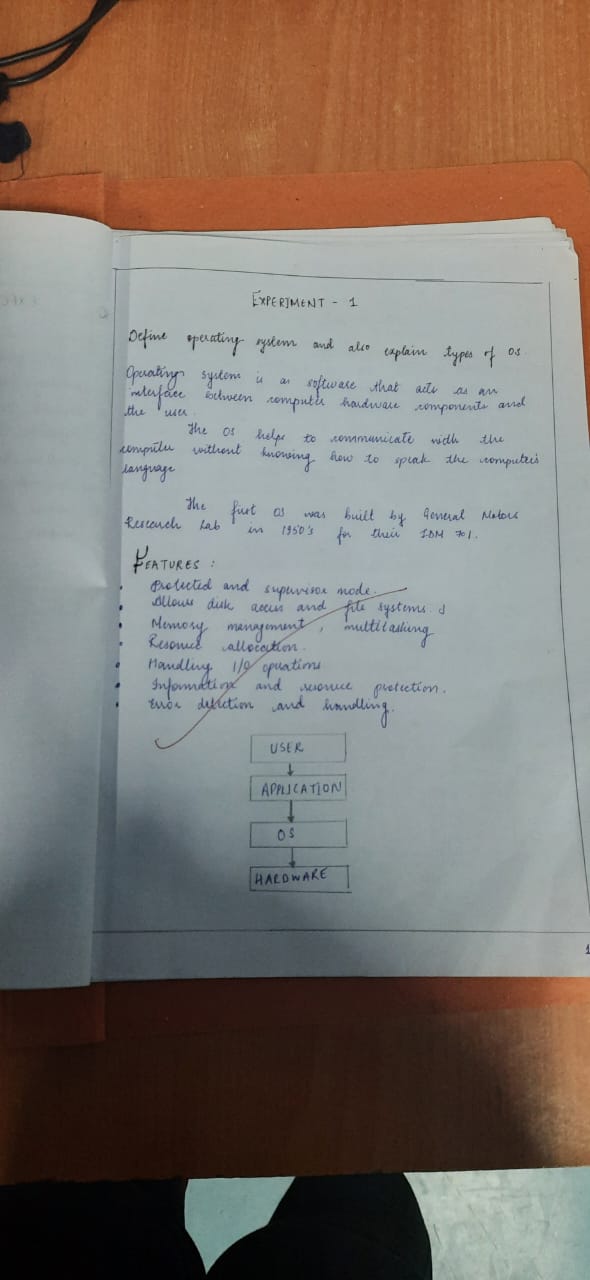 EXPERIMENT - 1
Define operating system and also explain types of OS
Operating system is as software that acts as an
interface between computer hardware components and
the user.
The OS helps to communicate with the
computer without knowing how to speak the computer's
language
The first OS was built by General Motors
Research Lab in 1950's for their IBM 701.
FEATURES :
Protected and supervisor mode.
Allows disk access and file systems.
Memory management, multitasking
Resource allocation.
Handling I/O operations
Information and resource protection.
Error detection and handling.
USER
APPLICATION
OS
HARDWARE
1